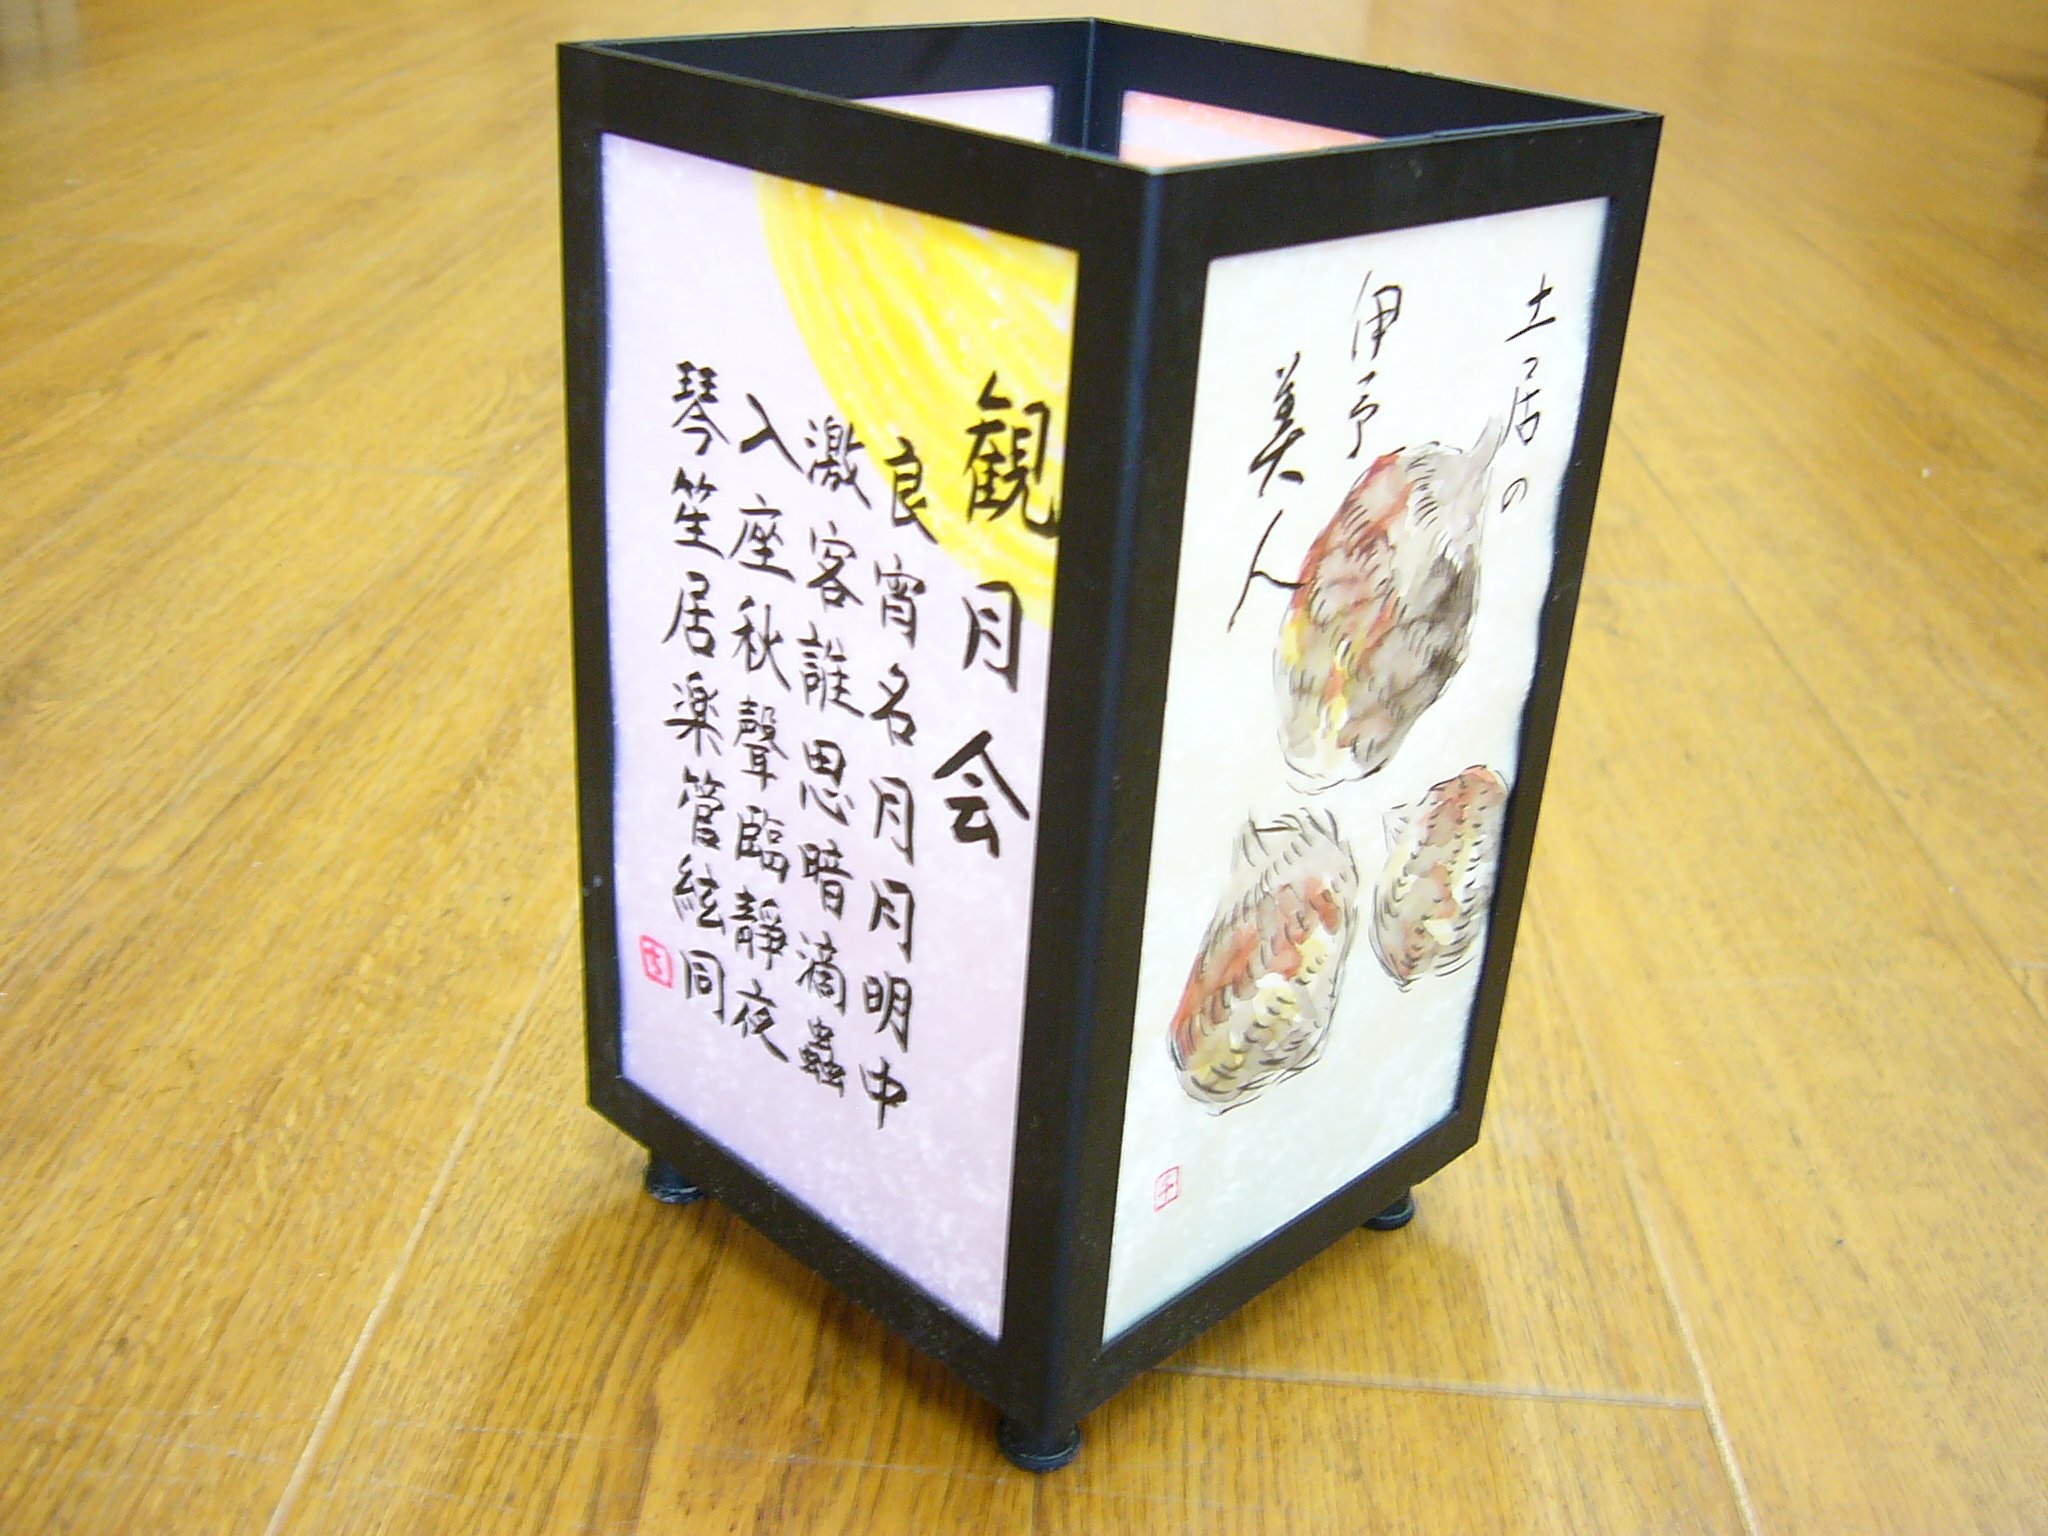 観月会
良宵名月月明中
激客誰思暗滴蟲
入座秋聲臨静夜
琴笙居楽管絃同
土居の
伊予
美人